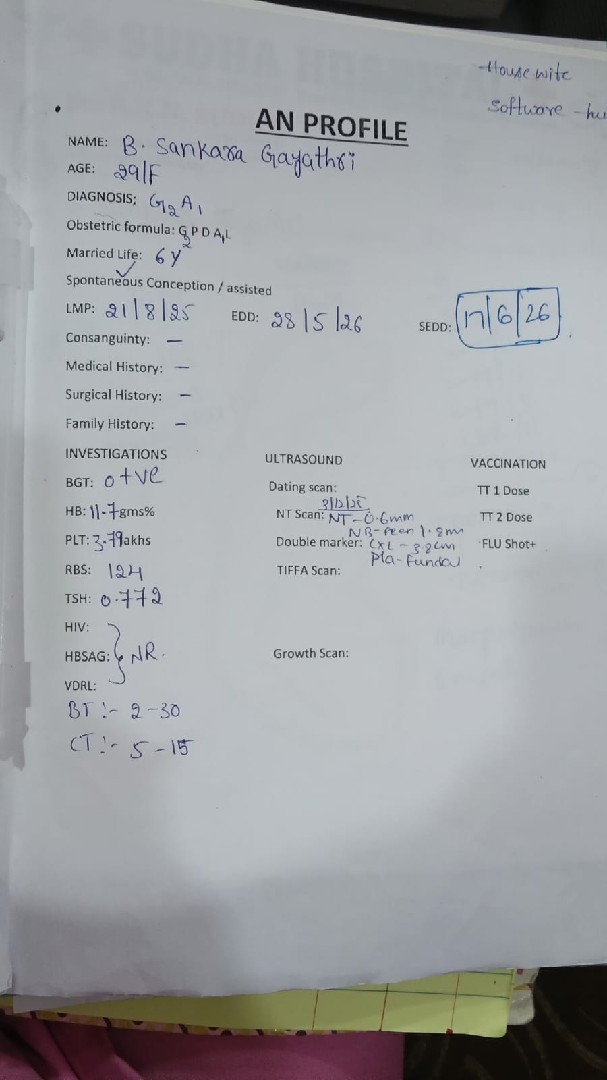 House wife
Software - hu
AN PROFILE
NAME: B. Sankara Gayathri
AGE: 29/F
DIAGNOSIS; G2 A1
Obstetric formula: G2 P D A1 L
Married Life: 6 Y
Spontaneous Conception / assisted
LMP: 21/8/25 EDD: 28/5/26 SEDD: 17/6/26
Consanguinty: —
Medical History: —
Surgical History: —
Family History: —
INVESTIGATIONS ULTRASOUND VACCINATION
BGT: O +ve Dating scan: TT 1 Dose
3/12/25
HB: 11.7gms% NT Scan: NT-0.6mm TT 2 Dose
NB-seen 1.8mm
PLT: 3.79lakhs Double marker: CRL - 3.8cm FLU Shot+
Pla-fundal
RBS: 124 TIFFA Scan:
TSH: 0.772
HIV:
HBSAG: NR. Growth Scan:
VDRL:
BT :- 2-30
CT :- 5-15